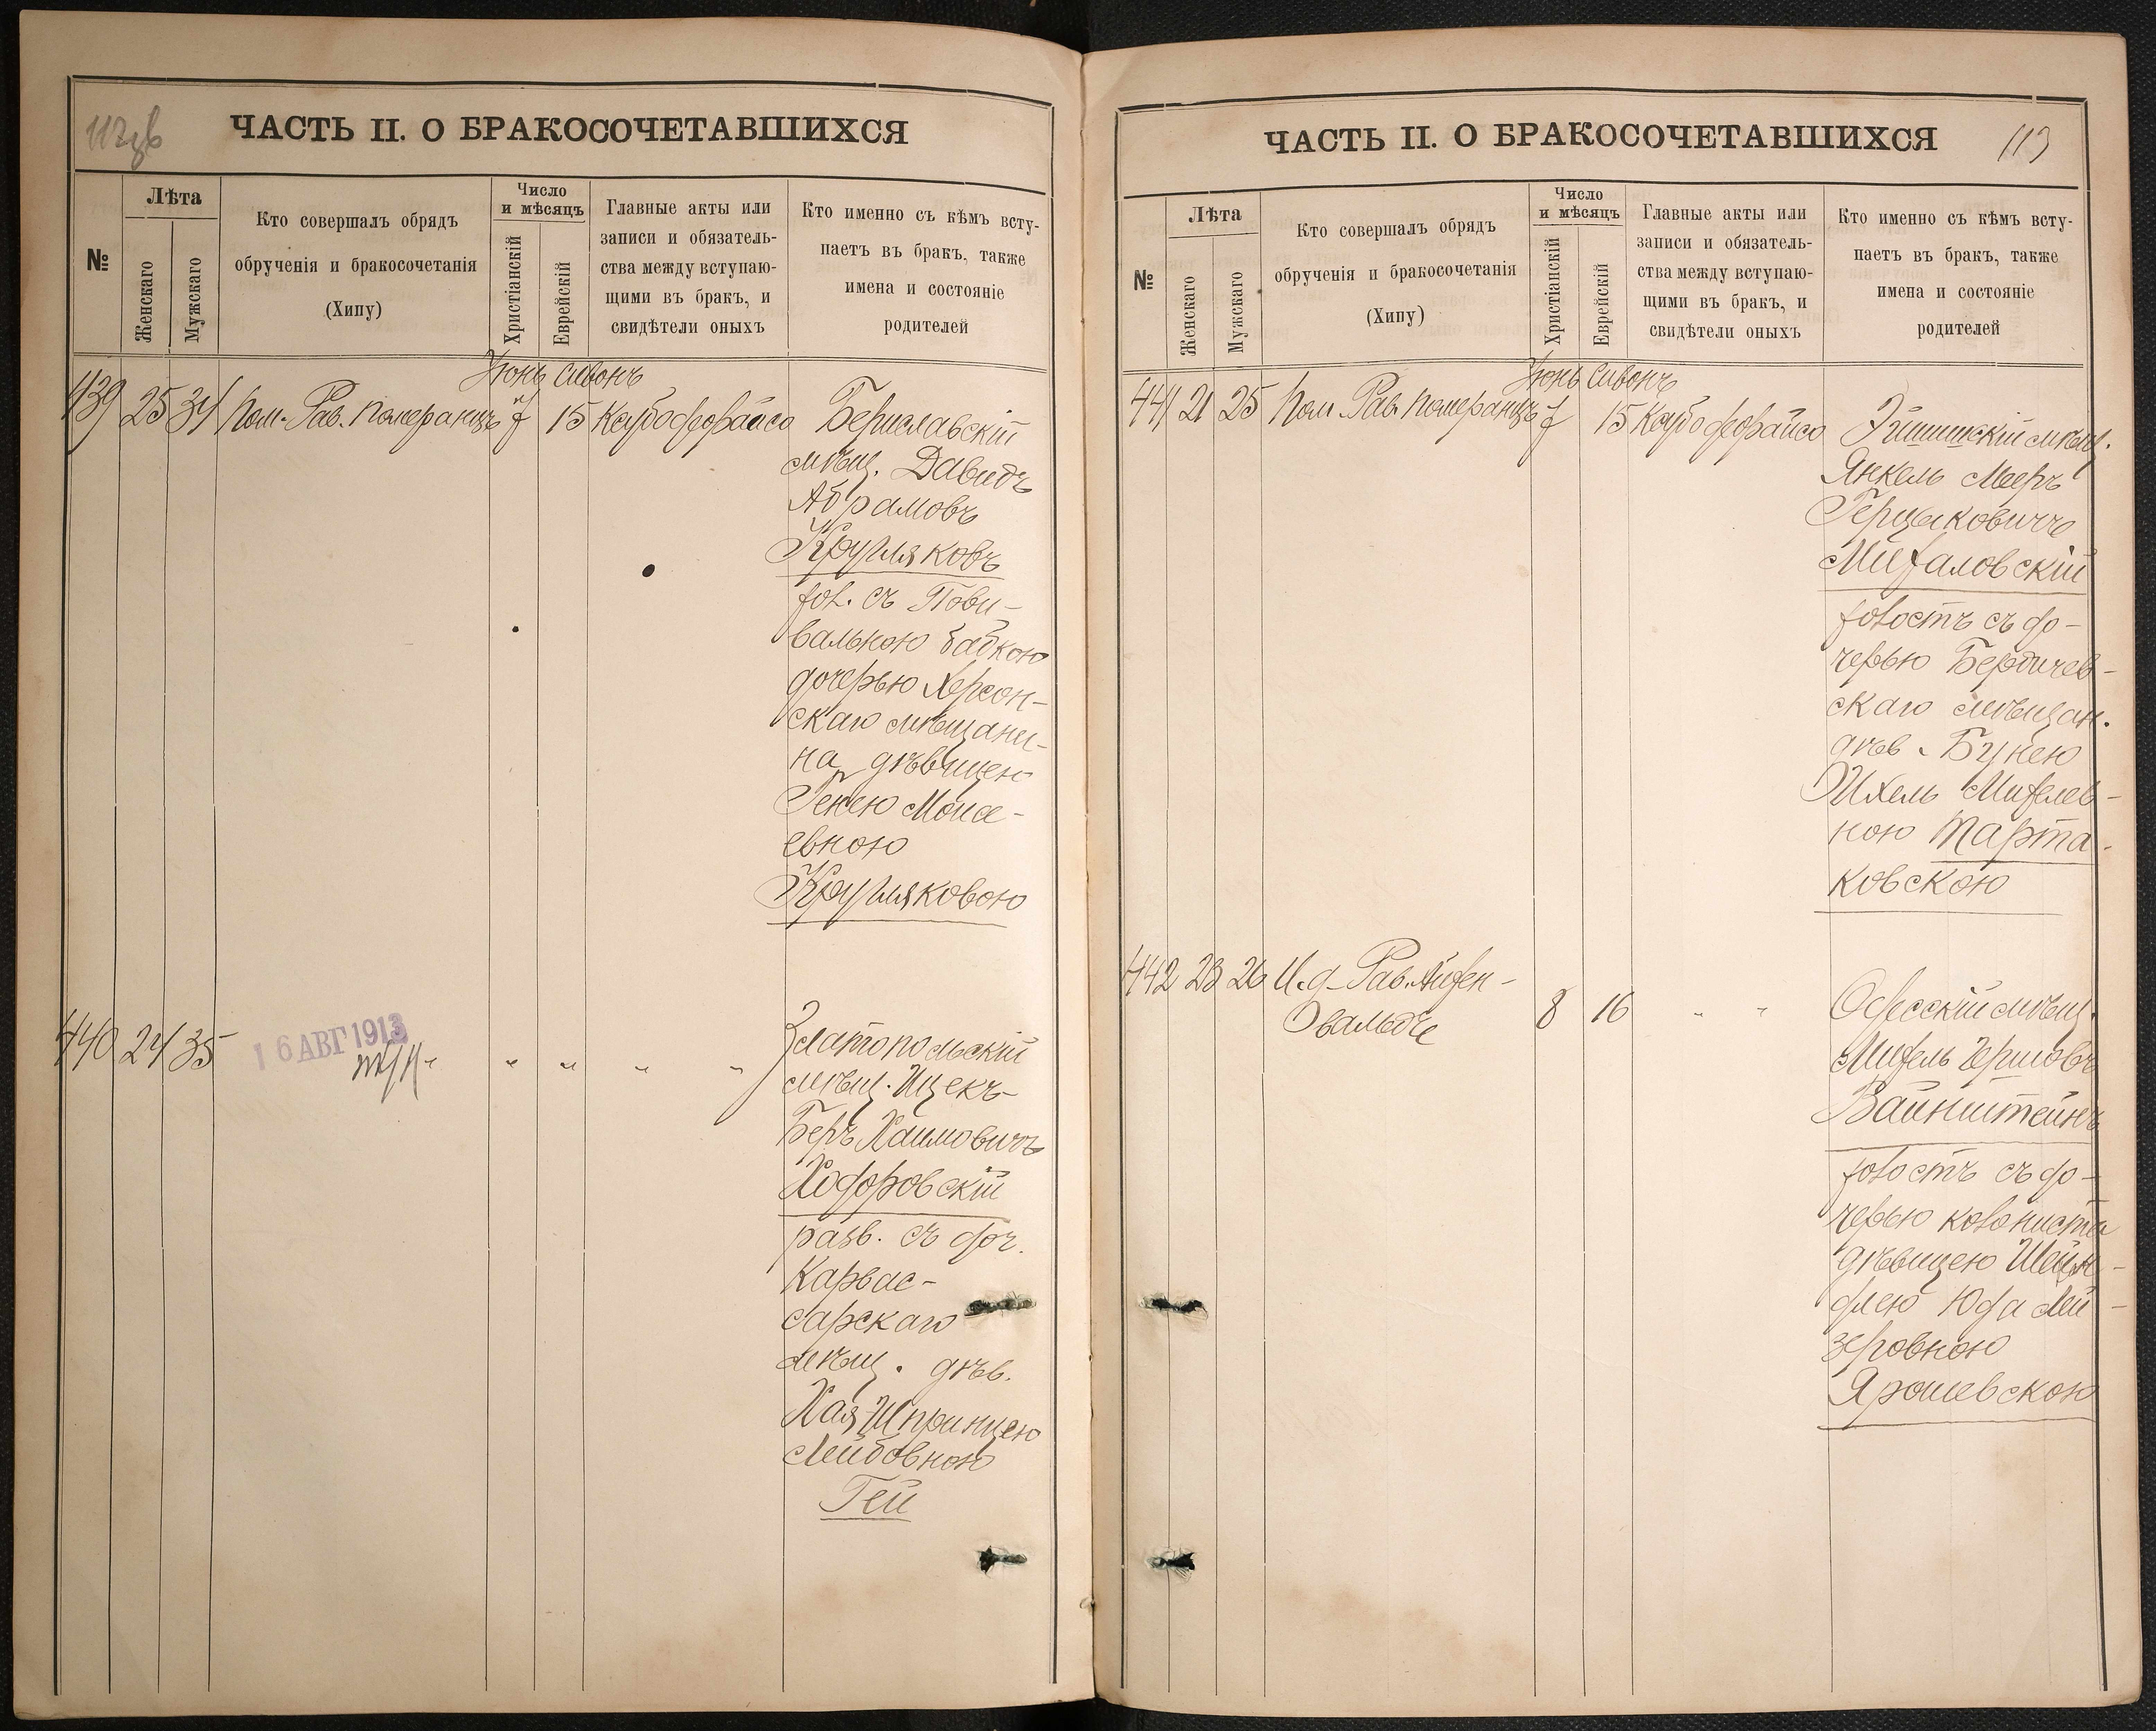 ЧАСТЬ II. О БРАКОСОЧЕТАВШИХСЯ
№
Лѣта
Женскаго
Мужскаго
Кто совершалъ обрядъ
обрученія и бракосочетанія
(Хипу)
Число
и мѣсяцъ
Христіанскій
Еврейскій
Главные акты или
записи и обязатель-
ства между вступаю-
щими въ бракъ, и
свидѣтели оныхъ
Кто именно съ кѣмъ всту-
паетъ въ бракъ, также
имена и состояніе
родителей
Іюнь Сивонъ
439 25 34 Пом. Рав. Померанцъ 7 15 Бериславскій
мѣщ. Давидъ
Абрамовъ
Кругляковъ
хол. съ Пови-
вальною бабкою
дочерью Херсон-
скаго мѣщани-
на дѣвицею
Генею Моисе-
евною
Кругляковою
440 24 35 16 АВГ 1913 " " " " Златопольскій
мѣщ. Ицекъ-
Беръ Хаимовичъ
Ходоровскій
разв. съ доч.
Карвас-
сарскаго
мѣщ. дѣв.
Хая Шпринцею
Лейбовною
Гей
ЧАСТЬ II. О БРАКОСОЧЕТАВШИХСЯ
113
№
Лѣта
Женскаго
Мужскаго
Кто совершалъ обрядъ
обрученія и бракосочетанія
(Хипу)
Число
и мѣсяцъ
Христіанскій
Еврейскій
Главные акты или
записи и обязатель-
ства между вступаю-
щими въ бракъ, и
свидѣтели оныхъ
Кто именно съ кѣмъ всту-
паетъ въ бракъ, также
имена и состояніе
родителей
Іюнь Сивонъ
441 21 25 Пом. Рав. Померанцъ 7 15 Эйшишскій мѣщ.
Янкель Мееръ
Герцыковичъ
Михаловскій
холостъ съ до-
черью Бердичев-
скаго мѣщан.
дѣв. Бунею
Ихель Михелев-
ною Тарта-
ковскою
442 23 26 И. д. Рав. Айхен-
вальдъ 8 16 " " Одесскій мѣщ.
Михель Гершовъ
Вайнштейнъ
холостъ съ до-
черью колониста
дѣвицею Шейн-
длею Юда Лей-
зеровною
Ярошевскою